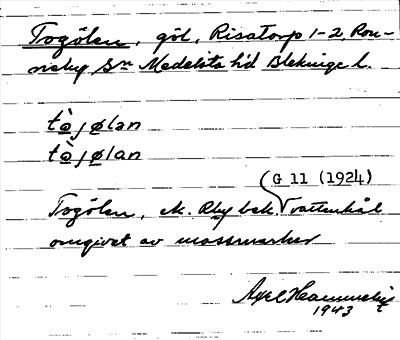 Togölen, göl, Risatorp 1-2, Ron-
neby Sn Medelsta hd Blekinge l.
tò̱jø̱lən
tò̱jø̱lan
G 11 (1924)
Togölen, ek. Rby bek. vattenhål
omgivet av mossmarker
Axel Hammelig
1943